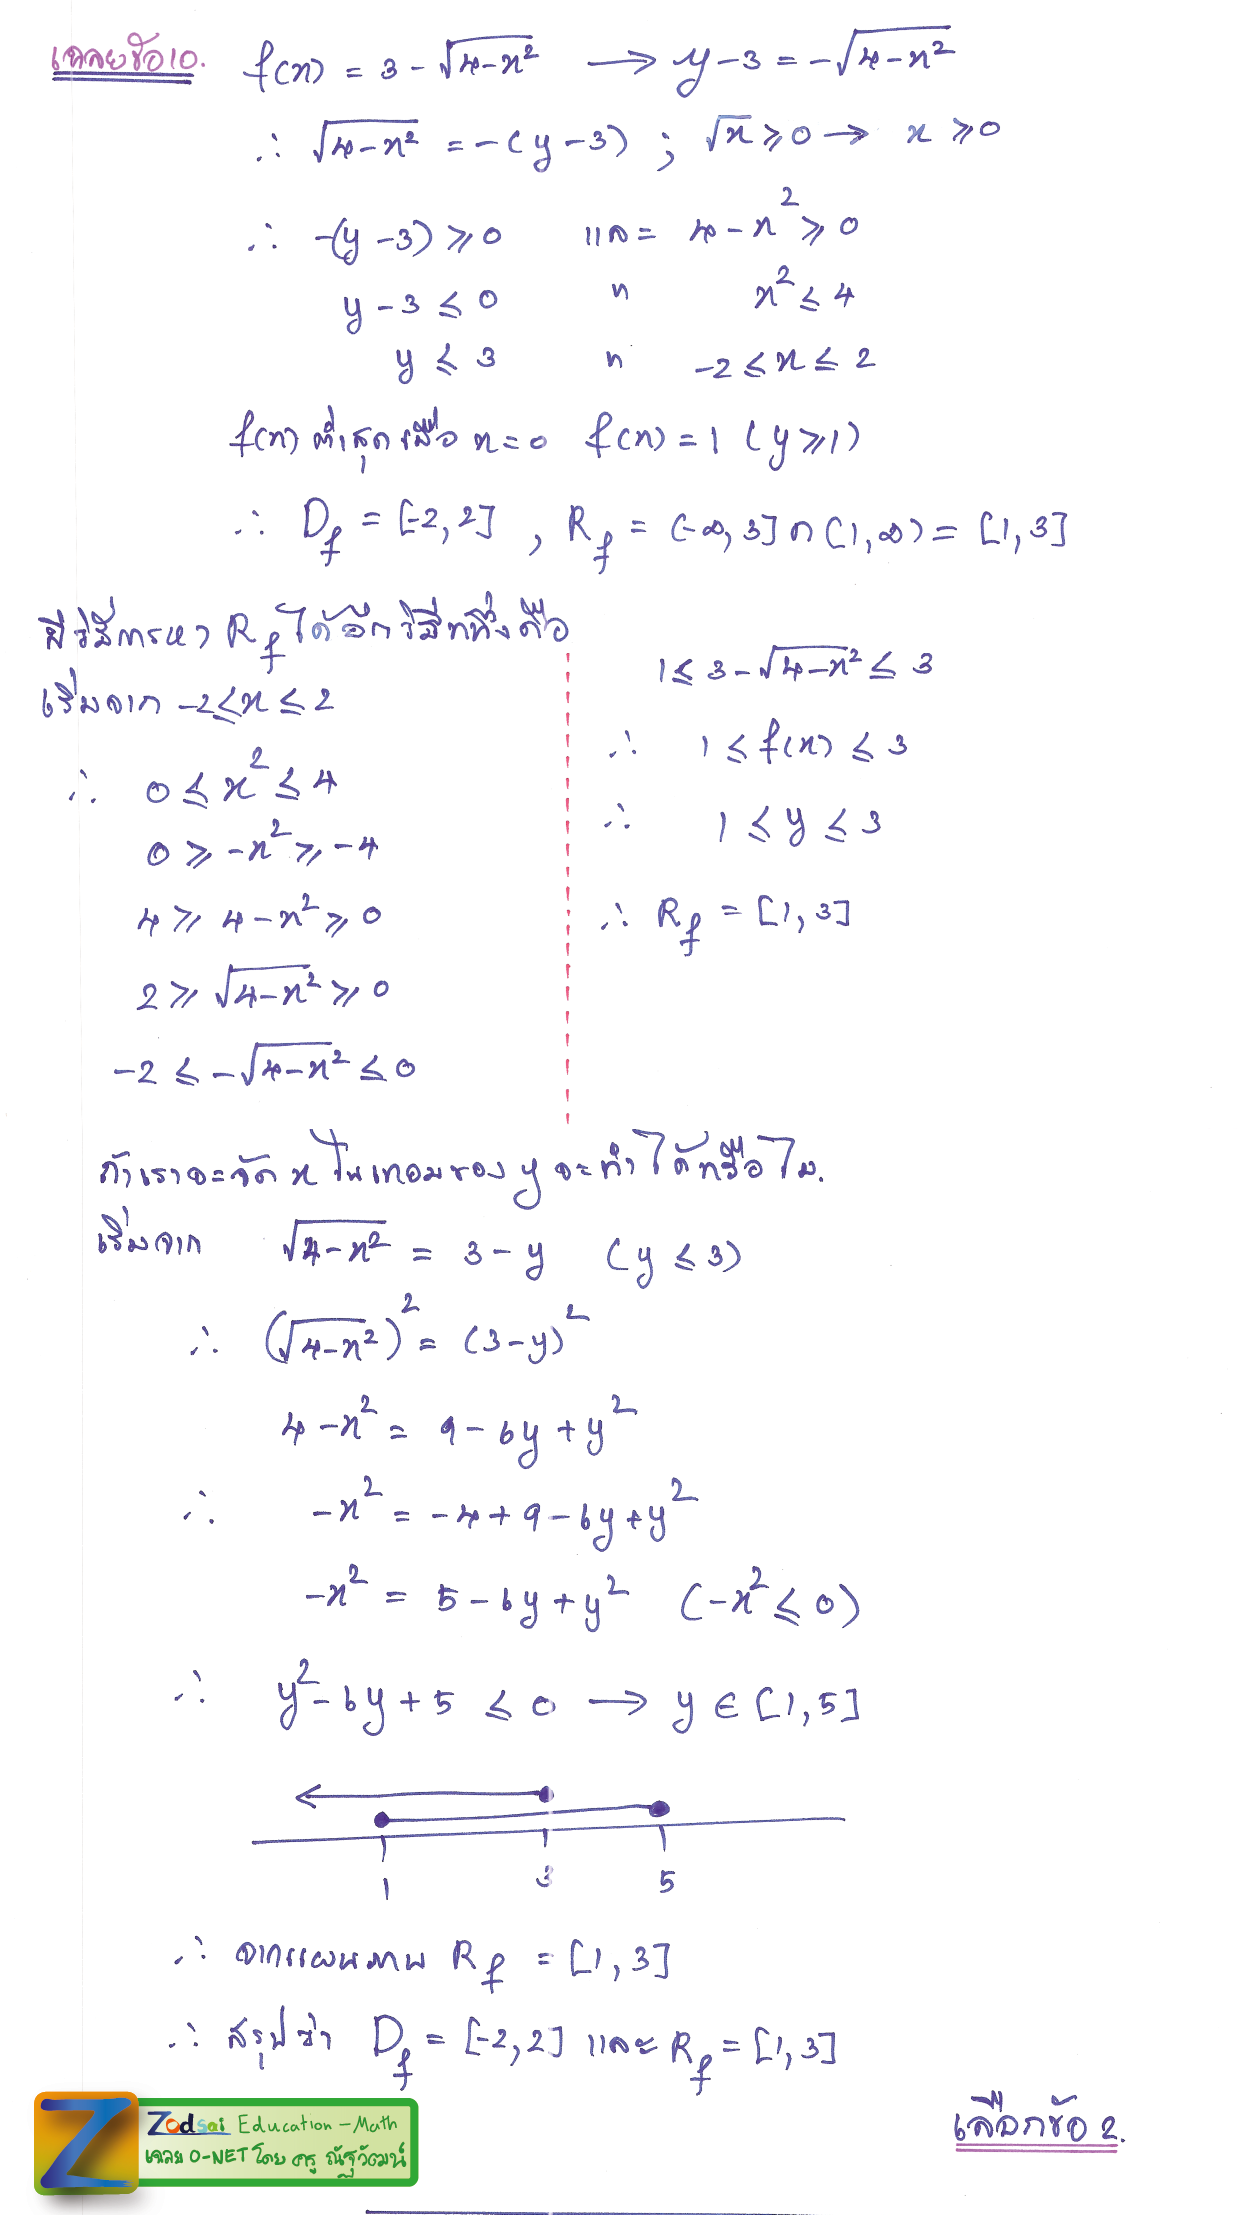 เฉลยข้อ 10. f(x) = 3 - √(4-x²) → y-3 = -√(4-x²)
∴ √(4-x²) = -(y-3) ; √x ≥ 0 → x ≥ 0
∴ -(y-3) ≥ 0 และ 4-x² ≥ 0
y-3 ≤ 0 " x² ≤ 4
y ≤ 3 " -2 ≤ x ≤ 2
f(x) ต่ำสุดเมื่อ x=0 f(x) = 1 (y ≥ 1)
∴ D_f = [-2,2] , R_f = (-∞,3] ∩ [1,∞) = [1,3]
มีวิธีการหา R_f ได้อีกวิธีหนึ่งคือ
เริ่มจาก -2 ≤ x ≤ 2
∴ 0 ≤ x² ≤ 4
0 ≥ -x² ≥ -4
4 ≥ 4-x² ≥ 0
2 ≥ √(4-x²) ≥ 0
-2 ≤ -√(4-x²) ≤ 0
1 ≤ 3-√(4-x²) ≤ 3
∴ 1 ≤ f(x) ≤ 3
∴ 1 ≤ y ≤ 3
∴ R_f = [1,3]
ถ้าเราจะจัด x ในเทอมของ y จะทำได้หรือไม่.
เริ่มจาก √(4-x²) = 3-y (y ≤ 3)
∴ (√(4-x²))² = (3-y)²
4-x² = 9-6y+y²
∴ -x² = -4+9-6y+y²
-x² = 5-6y+y² (-x² ≤ 0)
∴ y²-6y+5 ≤ 0 → y ∈ [1,5]
1 3 5
∴ จากแผนภาพ R_f = [1,3]
∴ สรุปว่า D_f = [-2,2] และ R_f = [1,3]
เลือกข้อ 2.
Z
Zodsai Education-Math
เฉลย O-NET โดย ครู ณัฐวัฒน์